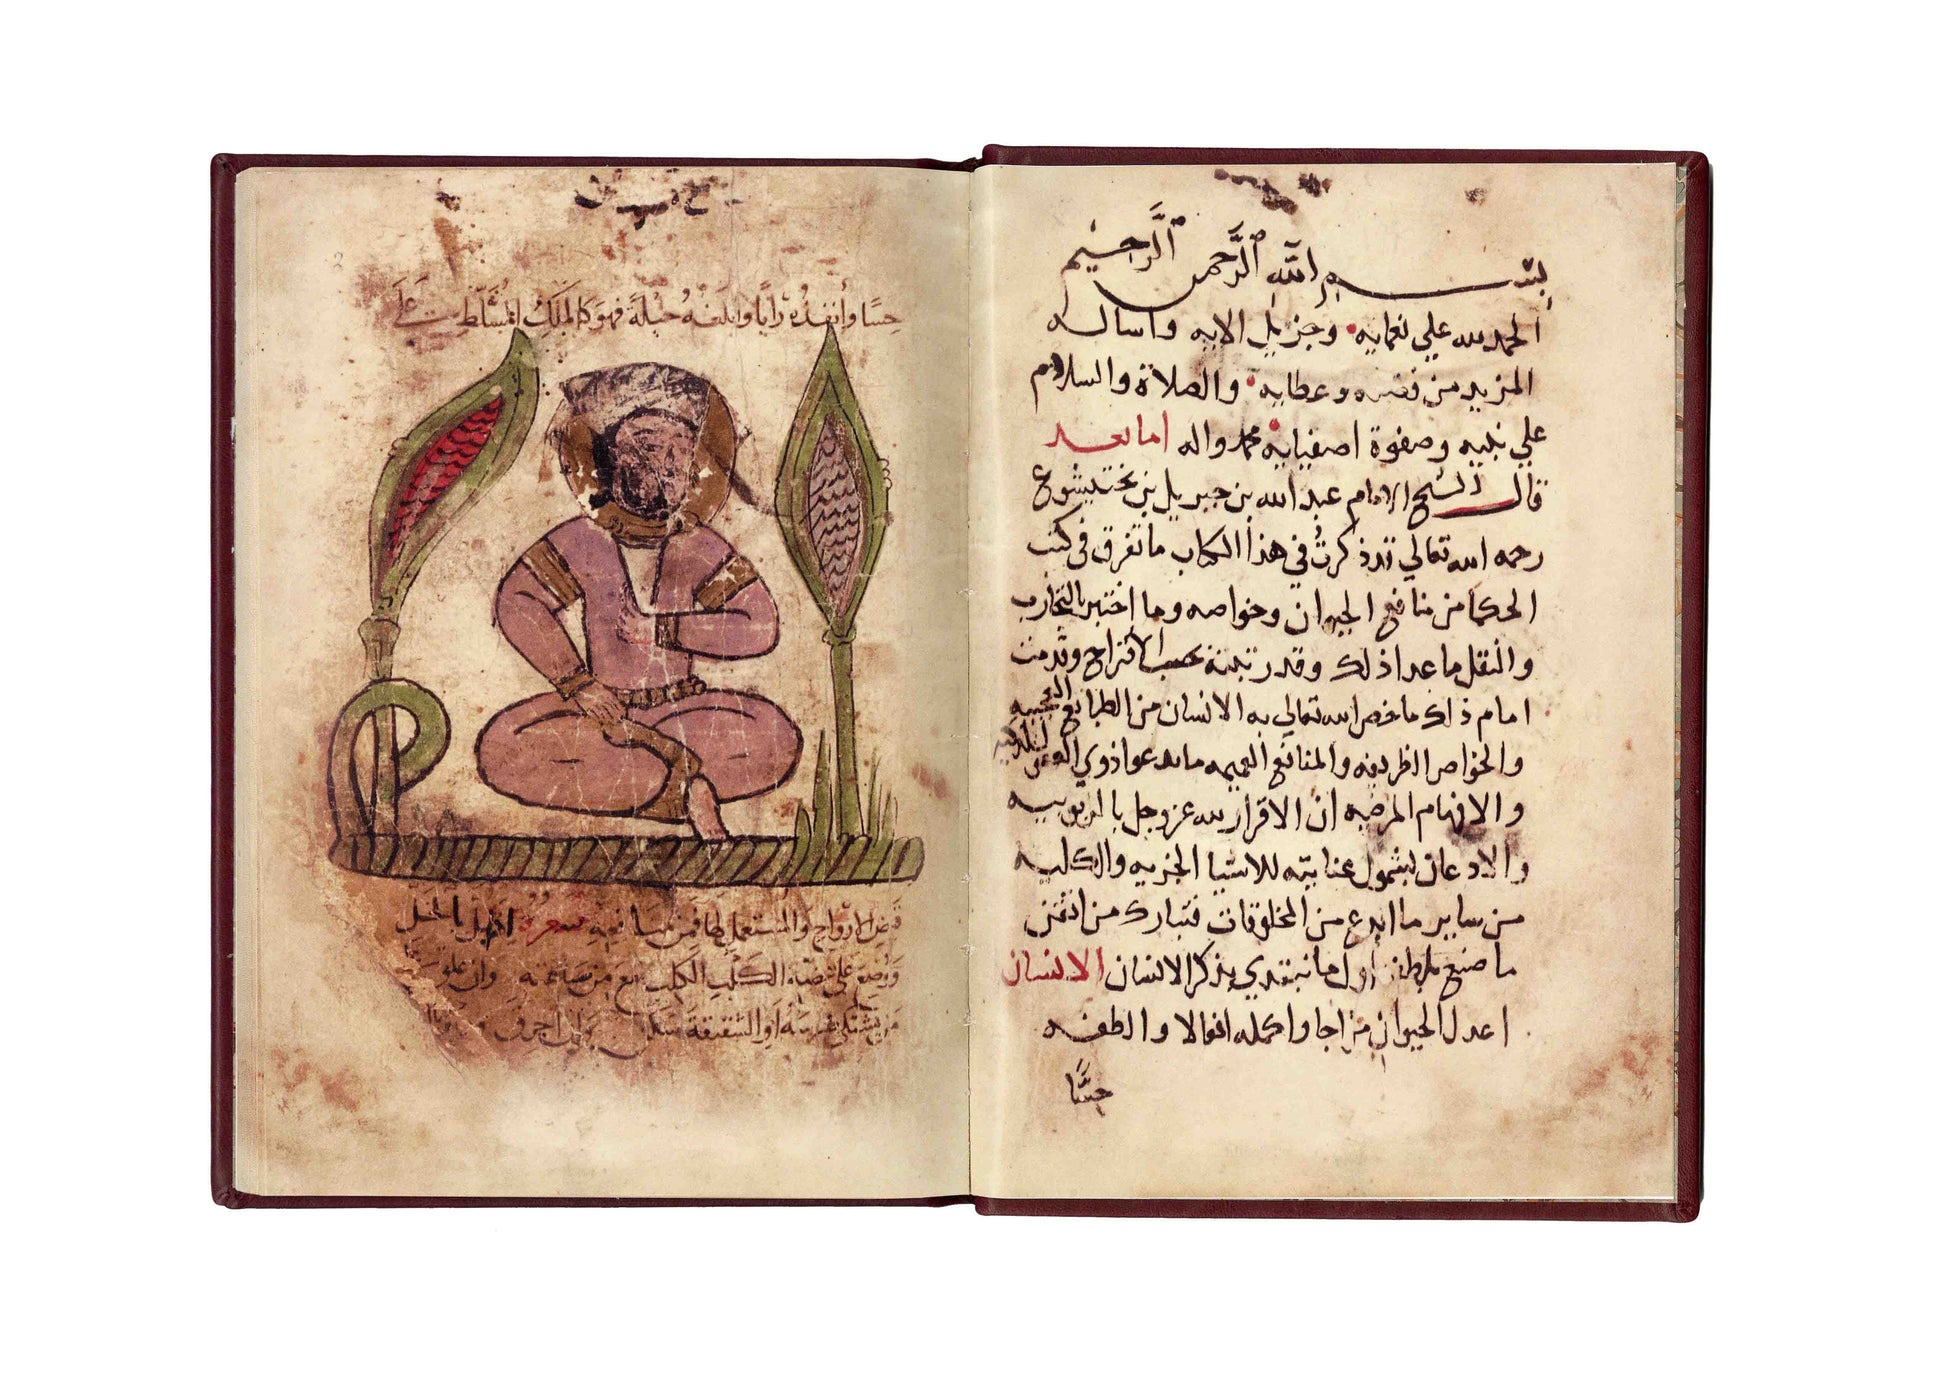 بسم الله الرحمن الرحيم
الحمد لله علي نعمايه وجزيل الايه واساله
المزيد من فضله وعطايه والصلاة والسلام
علي نبيه وصفوة اصفيايه محمد واله اما بعد
قال الشيخ الامام عبد الله بن جبريل بن بختيشوع
رحمه الله تعالي قد ذكرت في هذا الكتاب ما تفرق في كتب
الحكما من منافع الحيوان وخواصه وما اختبر بالتجارب
والنقل ما عدا ذلك وقد رتبته بحسب الاقتراح وقدمت
امام ذلك ما خص الله تعالي به الانسان من الطبايع العجيبه
والخواص الظريفه والمنافع العميمه ما يدعو اذوي العقول
والافهام المرضيه ان الاقرار لله عز وجل بالربوبيه
والادعان لشمول عنايته للاشيا الجزيه والكليه
من ساير ما ابدع من المخلوقات فتبارك من اتقن
ما صنع اول ما نبتدي بذكر الانسان الانسان
اعدل الحيوان مزاجا واكمله افعالا والطفه
حسًّا
حسًا وأنفذه رايًا فهو كالملك المسلط علي
الارواح والمستعمل لها فمن منافعه شعره اذا بل بالخل
ووضع علي عضة الكلب الكلب نفع من ساعته وان علق
من يشتكي ضرسه او الشقيقة سكن وان احرق